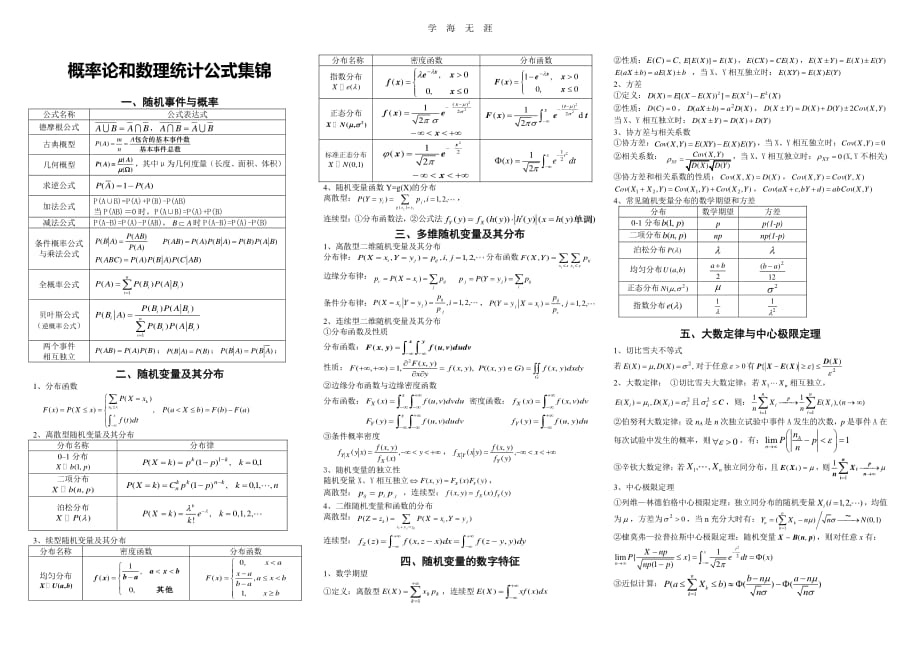 学 海 无 涯
概率论和数理统计公式集锦
一、随机事件与概率
公式名称 公式表达式
德摩根公式 $\overline{A\cup B}=\overline{A}\cap\overline{B}$，$\overline{A\cap B}=\overline{A}\cup\overline{B}$
古典概型 $P(A)=\frac{m}{n}=\frac{A包含的基本事件数}{基本事件总数}$
几何概型 $P(A)=\frac{\mu(A)}{\mu(\Omega)}$，其中μ为几何度量（长度、面积、体积）
求逆公式 $P(\overline{A})=1-P(A)$
加法公式 P(A∪B)=P(A)+P(B)-P(AB)
当P(AB)＝0时，P(A∪B)=P(A)+P(B)
减法公式 P(A-B)=P(A)-P(AB)，$B\subset A$时P(A-B)=P(A)-P(B)
条件概率公式与乘法公式 $P(B|A)=\frac{P(AB)}{P(A)}$ $P(AB)=P(A)P(B|A)=P(B)P(A|B)$
$P(ABC)=P(A)P(B|A)P(C|AB)$
全概率公式 $P(A)=\sum_{i=1}^{n}P(B_i)P(A|B_i)$
贝叶斯公式（逆概率公式） $P(B_i|A)=\frac{P(B_i)P(A|B_i)}{\sum_{i=1}^{n}P(B_i)P(A|B_i)}$
两个事件相互独立 $P(AB)=P(A)P(B)$；$P(B|A)=P(B)$；$P(B|A)=P(B|\overline{A})$；
二、随机变量及其分布
1、分布函数
$F(x)=P(X\le x)=\begin{cases}\sum_{x_k\le x}P(X=x_k)\\ \int_{-\infty}^{x}f(t)dt\end{cases}$，$P(a<X\le b)=F(b)-F(a)$
2、离散型随机变量及其分布
分布名称 分布律
0–1 分布 X b(1, p) $P(X=k)=p^k(1-p)^{1-k},\ k=0,1$
二项分布 X b(n, p) $P(X=k)=C_n^kp^k(1-p)^{n-k},\ k=0,1,\cdots,n$
泊松分布 X P(λ) $P(X=k)=\frac{\lambda^k}{k!}e^{-\lambda},\ k=0,1,2,\cdots$
3、续型随机变量及其分布
分布名称 密度函数 分布函数
均匀分布 X U(a,b) $f(x)=\begin{cases}\frac{1}{b-a},&a<x<b\\0,&其他\end{cases}$ $F(x)=\begin{cases}0,&x<a\\\frac{x-a}{b-a},&a\le x<b\\1,&x\ge b\end{cases}$
分布名称 密度函数 分布函数
指数分布 X e(λ) $f(x)=\begin{cases}\lambda e^{-\lambda x},&x>0\\0,&x\le 0\end{cases}$ $F(x)=\begin{cases}1-e^{-\lambda x},&x>0\\0,&x\le 0\end{cases}$
正态分布 X N(μ,σ²) $f(x)=\frac{1}{\sqrt{2\pi}\sigma}e^{-\frac{(x-\mu)^2}{2\sigma^2}}$ $-\infty<x<+\infty$ $F(x)=\frac{1}{\sqrt{2\pi}\sigma}\int_{-\infty}^{x}e^{-\frac{(t-\mu)^2}{2\sigma^2}}dt$
标准正态分布 X N(0,1) $\varphi(x)=\frac{1}{\sqrt{2\pi}}e^{-\frac{x^2}{2}}$ $-\infty<x<+\infty$ $\Phi(x)=\frac{1}{\sqrt{2\pi}}\int_{-\infty}^{x}e^{-\frac{t^2}{2}}dt$
4、随机变量函数 Y=g(X)的分布
离散型：$P(Y=y_i)=\sum_{g(x_j)=y_i}p_j,\ i=1,2,\cdots$，
连续型：①分布函数法，②公式法 $f_Y(y)=f_X(h(y))\cdot|h'(y)|(x=h(y)单调)$
三、多维随机变量及其分布
1、离散型二维随机变量及其分布
分布律：$P(X=x_i,Y=y_j)=p_{ij},i,j=1,2,\cdots$ 分布函数 $F(X,Y)=\sum_{x_i\le x}\sum_{y_j\le y}p_{ij}$
边缘分布律：$p_{i\cdot}=P(X=x_i)=\sum_jp_{ij}$ $p_{\cdot j}=P(Y=y_j)=\sum_ip_{ij}$
条件分布律：$P(X=x_i|Y=y_j)=\frac{p_{ij}}{p_{\cdot j}},i=1,2,\cdots$，$P(Y=y_j|X=x_i)=\frac{p_{ij}}{p_{i\cdot}},j=1,2,\cdots$
2、连续型二维随机变量及其分布
①分布函数及性质
分布函数：$F(x,y)=\int_{-\infty}^{x}\int_{-\infty}^{y}f(u,v)dudv$
性质：$F(+\infty,+\infty)=1,\frac{\partial^2F(x,y)}{\partial x\partial y}=f(x,y),\ P((x,y)\in G)=\iint_Gf(x,y)dxdy$
②边缘分布函数与边缘密度函数
分布函数：$F_X(x)=\int_{-\infty}^{x}\int_{-\infty}^{+\infty}f(u,v)dvdu$ 密度函数：$f_X(x)=\int_{-\infty}^{+\infty}f(x,v)dv$
$F_Y(y)=\int_{-\infty}^{y}\int_{-\infty}^{+\infty}f(u,v)dudv$ $f_Y(y)=\int_{-\infty}^{+\infty}f(u,y)du$
③条件概率密度
$f_{Y|X}(y|x)=\frac{f(x,y)}{f_X(x)},-\infty<y<+\infty$，$f_{X|Y}(x|y)=\frac{f(x,y)}{f_Y(y)},-\infty<x<+\infty$
3、随机变量的独立性
随机变量 X、Y 相互独立$\Leftrightarrow F(x,y)=F_X(x)F_Y(y)$，
离散型：$p_{ij}=p_{i\cdot}p_{\cdot j}$，连续型：$f(x,y)=f_X(x)f_Y(y)$
4、二维随机变量和函数的分布
离散型：$P(Z=z_k)=\sum_{x_i+y_j=z_k}P(X=x_i,Y=y_j)$
连续型：$f_Z(z)=\int_{-\infty}^{+\infty}f(x,z-x)dx=\int_{-\infty}^{+\infty}f(z-y,y)dy$
四、随机变量的数字特征
1、数学期望
①定义：离散型 $E(X)=\sum_{k=1}^{+\infty}x_kp_k$，连续型 $E(X)=\int_{-\infty}^{+\infty}xf(x)dx$
②性质：$E(C)=C,\ E[E(X)]=E(X)$，$E(CX)=CE(X)$，$E(X\pm Y)=E(X)\pm E(Y)$
$E(aX\pm b)=aE(X)\pm b$ ，当 X、Y 相互独立时：$E(XY)=E(X)E(Y)$
2、方差
①定义：$D(X)=E[(X-E(X))^2]=E(X^2)-E^2(X)$
②性质：$D(C)=0$，$D(aX\pm b)=a^2D(X)$，$D(X\pm Y)=D(X)+D(Y)\pm 2Cov(X,Y)$
当 X、Y 相互独立时：$D(X\pm Y)=D(X)+D(Y)$
3、协方差与相关系数
①协方差：$Cov(X,Y)=E(XY)-E(X)E(Y)$，当 X、Y 相互独立时：$Cov(X,Y)=0$
②相关系数：$\rho_{XY}=\frac{Cov(X,Y)}{\sqrt{D(X)}\sqrt{D(Y)}}$，当 X、Y 相互独立时：$\rho_{XY}=0$(X,Y 不相关)
③协方差和相关系数的性质：$Cov(X,X)=D(X)$，$Cov(X,Y)=Cov(Y,X)$
$Cov(X_1+X_2,Y)=Cov(X_1,Y)+Cov(X_2,Y)$，$Cov(aX+c,bY+d)=abCov(X,Y)$
4、常见随机变量分布的数学期望和方差
分布 数学期望 方差
0-1 分布 b(1, p) p p(1-p)
二项分布 b(n, p) np np(1-p)
泊松分布 P(λ) λ λ
均匀分布 U(a,b) $\frac{a+b}{2}$ $\frac{(b-a)^2}{12}$
正态分布 N(μ,σ²) μ σ²
指数分布 e(λ) $\frac{1}{\lambda}$ $\frac{1}{\lambda^2}$
五、大数定律与中心极限定理
1、切比雪夫不等式
若 $E(X)=\mu,D(X)=\sigma^2$, 对于任意$\varepsilon>0$有 $P\{|X-E(X)|\ge\varepsilon\}\le\frac{D(X)}{\varepsilon^2}$
2、大数定律：①切比雪夫大数定律：若 $X_1\cdots X_n$ 相互独立，
$E(X_i)=\mu_i,D(X_i)=\sigma_i^2$ 且 $\sigma_i^2\le C$，则：$\frac{1}{n}\sum_{i=1}^{n}X_i\xrightarrow{P}\frac{1}{n}\sum_{i=1}^{n}E(X_i),(n\to\infty)$
②伯努利大数定律：设 $n_A$ 是 n 次独立试验中事件 A 发生的次数，p 是事件 A 在
每次试验中发生的概率，则$\forall\varepsilon>0$，有：$\lim_{n\to\infty}P\left(\left|\frac{n_A}{n}-p\right|<\varepsilon\right)=1$
③辛钦大数定律：若 $X_1,\cdots,X_n$ 独立同分布，且 $E(X_i)=\mu$，则 $\frac{1}{n}\sum_{i=1}^{n}X_i\xrightarrow[n\to\infty]{P}\mu$
3、中心极限定理
①列维—林德伯格中心极限定理：独立同分布的随机变量 $X_i(i=1,2,\cdots)$，均值
为μ，方差为$\sigma^2>0$，当 n 充分大时有：$Y_n=(\sum_{k=1}^{n}X_k-n\mu)/\sqrt{n}\sigma\xrightarrow{\sim}N(0,1)$
②棣莫弗—拉普拉斯中心极限定理：随机变量 $X\sim B(n,p)$，则对任意 x 有：
$\lim_{n\to\infty}P\{\frac{X-np}{\sqrt{np(1-p)}}\le x\}=\int_{-\infty}^{x}\frac{1}{\sqrt{2\pi}}e^{-\frac{t^2}{2}}dt=\Phi(x)$
③近似计算：$P(a\le\sum_{k=1}^{n}X_k\le b)\approx\Phi(\frac{b-n\mu}{\sqrt{n}\sigma})-\Phi(\frac{a-n\mu}{\sqrt{n}\sigma})$